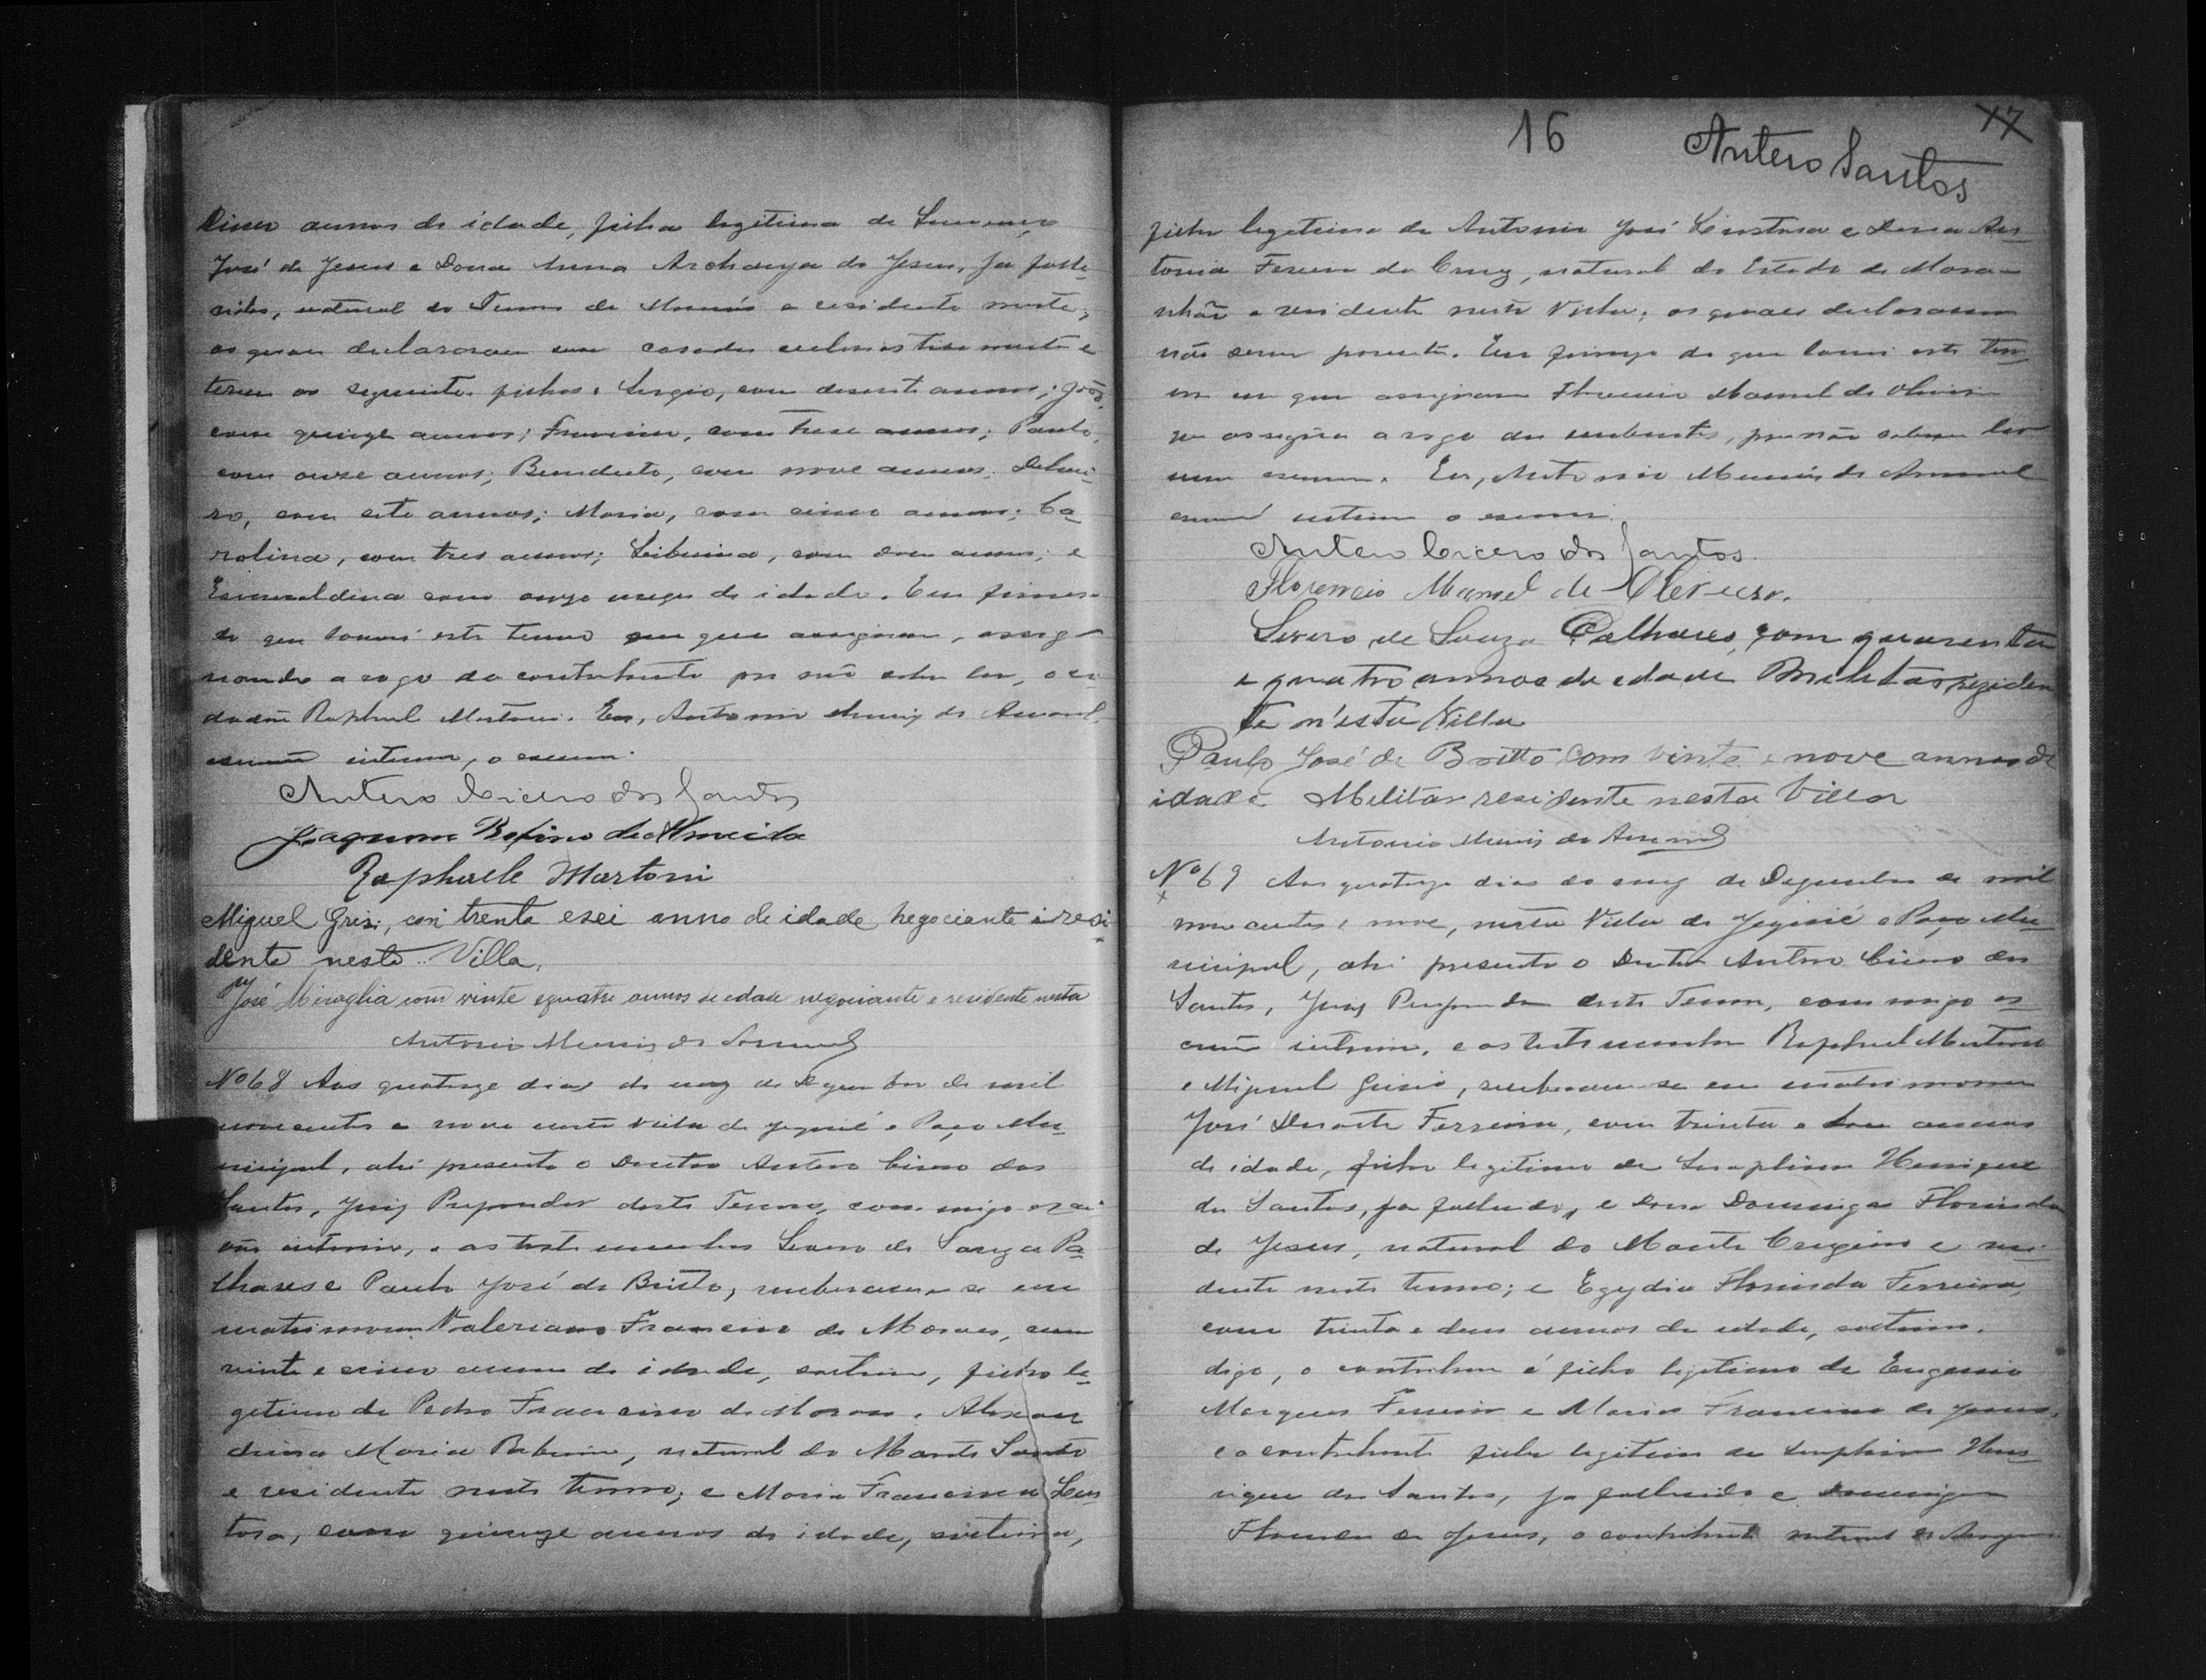 cinco annos de idade, filha legitima de Lourenço
José de Jesus e Dona Anna Archanja de Jesus, ja falle
cidos, natural do Termo de e residente neste;
os quaes declararam ser casados ecclesiasticamente e
terem os seguintes filhos: Sergio, com desesete annos; João,
com quinze annos; Francisca, com treze annos; Paulo,
com onze annos; Benedicto, com nove annos;
ro, com sete annos; Maria, com cinco annos; Ca
rolina, com tres annos; Libania, com dois annos; e
Esmeraldina com onze mezes de idade. Em firmeza
do que lavrei este termo em que assignam, assig-
nando a rogo da contrahente por não saber ler, o ci
dadão Raphael Martoni. Eu, Antonio Muniz do Amaral
escrivão interino, o escrevi.
Antero Cicero dos Santos
Joaquim Rofino de Almeida
Raphaele Martoni
Miguel Grisi, con trenta e sei anno de idade negociante i resi
dente nesta Villa.
José Miraglia com vinte e quatro annos de edade negociante e residente nesta
Antonio Muniz do Amaral
No 68 Aos quatorze dias do mez de Dezembro de mil
novecentos e nove nesta Villa de Jequié e Paço Mu
nicipal, ahi presente o Doutor Antero Cicero dos
Santos, Juiz Preparador deste Termo, commigo escri
vão interino, e as testemunhas Severo de Souza Pa
lhares e Paulo José de Britto, receberam-se em
matrimonio Valeriano Francisco de Moraes, com
vinte e cinco annos de idade, solteiro, filho le
gitimo de Pedro Francisco de Moraes e Alexan
drina Maria, natural do Monte Santo
e residente neste termo; e Maria Francisca Lus
tosa, com quinze annos de idade, solteira,
16 Antero Santos 17
filha legitima de Antonio José Lustosa e Dona An
tonia Ferreira da Cruz, natural do Estado do Mara-
nhão e residente nesta Villa; os quaes declararam
não serem parentes. Em firmeza do que lavrei este ter
mo em que assignam Florencio Manoel de Oliveira
que assigna a rogo dos nubentes, por não saberem ler
nem escrever. Eu, Antonio Muniz do Amaral
escrivão interino o escrevi.
Antero Cicero dos Santos.
Florencio Manoel de Oliveira.
Severo de Souza Palhares, com quarenta
e quatro annos de edade Melitar, reziden
te n'esta Villa
Paulo José de Britto com vinte e nove annos de
idade Melitar residente nesta Villa
Antonio Muniz do Amaral
No 69 Aos quatorze dias do mez de Dezembro de mil
novecentos e nove, nesta Villa de Jequié e Paço Mu
nicipal, ahi presente o Doutor Antero Cicero dos
Santos, Juiz Preparador deste Termo, commigo es
crivão interino, e as testemunhas Raphael Martoni
e Miguel Grisi, receberam-se em matrimonio
José Duarte Ferreira, com trinta e dois annos
de idade, filho legitimo de Seraphim Henrique
dos Santos, ja fallecido, e Dona Domingas Florinda
de Jesus, natural do Monte Cruzeiro e resi
dente neste termo; e Egydia Florinda Ferreira,
com trinta e dous annos de idade, solteira.
digo, o contrahente é filho legitimo de Eugenio
Marques Ferreira e Maria Francisca de Jesus,
e a contrahente filha legitima de Seraphim Hen
rique dos Santos, ja fallecido e Domingas
Florinda de Jesus, o contrahente natural de